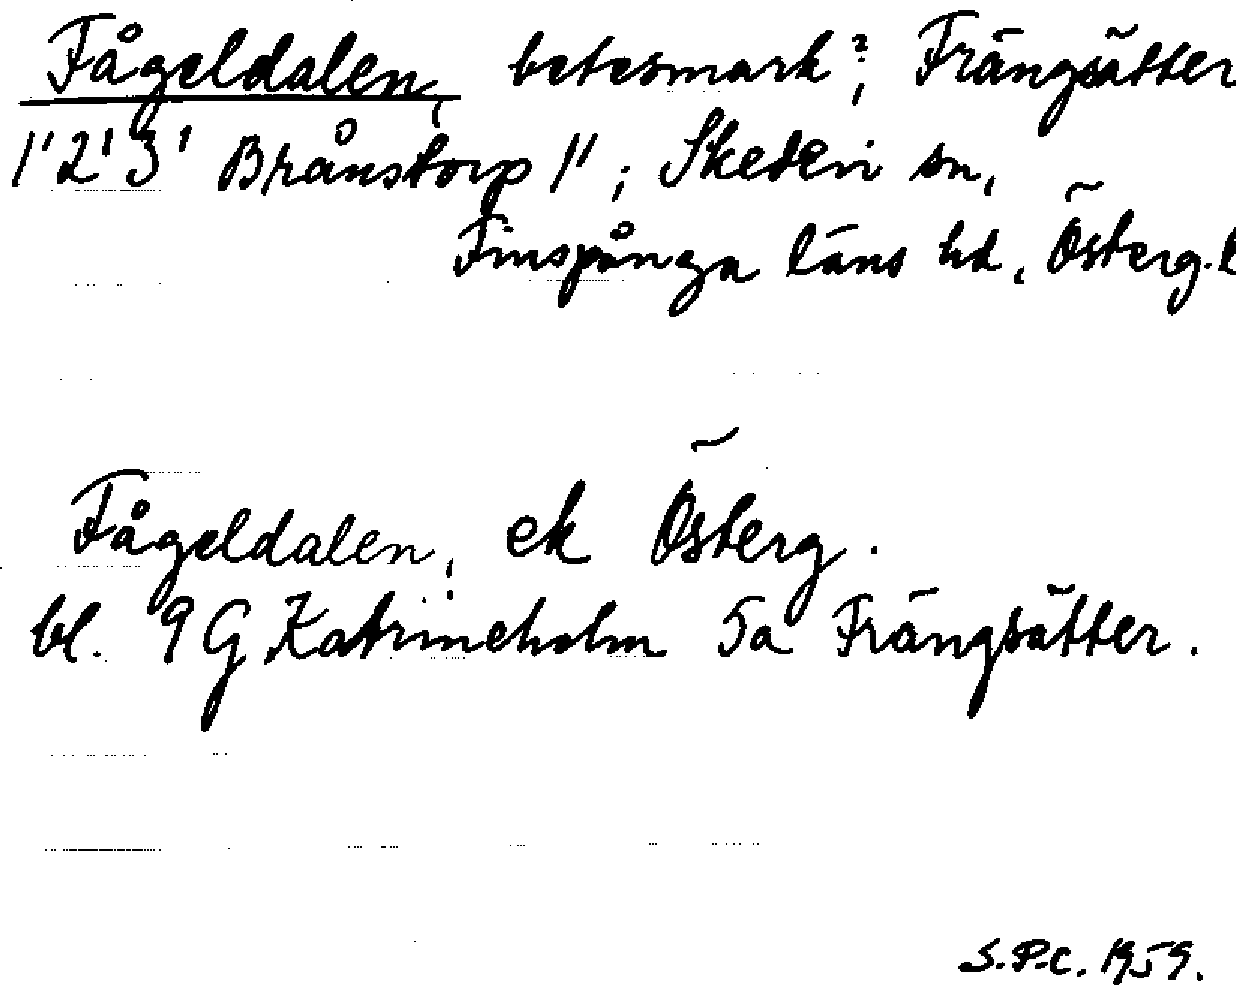 Fågeldalen, betesmark?, Frängsätter
1'2'3' Brånstorp 1'; Skedevi sn,
Finspånga läns hd, Österg.l
Fågeldalen, ek Österg.
bl. 9G Katrineholm 5a Frängsätter.
S.P.C. 1959.